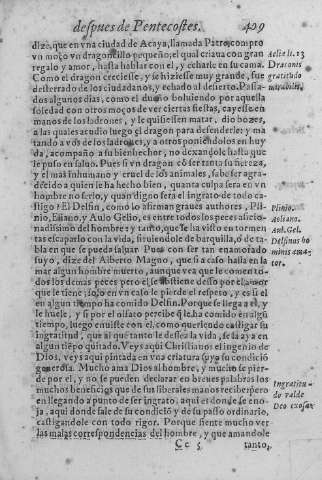 despues de Pentecostes. 409
dize, que en vna ciudad de Acaya, llamada Patrę, compro
vn moço vn dragoncillo pequeño, el qual criaua con gran
regalo y amor, hasta hablar con el, y echarle en su cama.
Como el dragon creciesse, y se hiziesse muy grande, fue
desterrado de los ciudadanos, y echado al desierto. Passa-
dos algunos dias, como el dueño boluiendo por aquella
soledad con otros moços de ver ciertas fiestas, cayesse en
manos de los ladrones, y le quisiessen matar, dio bozes,
a las quales acudio luego el dragon para defenderle: y ma
tando a vños de los ladrones, y a otros poniendolos en huy
da, acompaño a su bienhechor, no dexandole hasta que
le puso en saluo. Pues si vn dragon cō ser tanta su fiereza,
y el mas inhumano y cruel de los animales, sabe ser agra-
decido a quien le ha hecho bien, quanta culpa sera en vn
hombre no serlo, y quan digno sera el ingrato de todo cas
tigo? El Delfin, como lo afirman graues authores, Pli-
nio, Eliano, y Aulo Gelio, es entre todos los peces aficio-
nadissimo del hombre: y tanto, que se ha visto en tormen
tas escaparlo con la vida, siruiendole de barquilla, o de ta-
bla en que se pueda saluar. Pues con ser tan enamorado
suyo, dize del Alberto Magno, que si a caso halla en la
mar algun hombre muerto, aunque vea que le comen to-
dos los demas peces pero el se abstiene desso por el amor
que le tiene; solo en vn caso le pierde el respeto, y es si el
en algun tiempo ha comido Delfin. Porque se llega a el, y
le huele, y si por el olfato percibe q̄ le ha comido en algū
tiempo, luego enuiste con el, como queriendo castigar su
ingratitud, que al que tanto le dessea la vida, se la aya en
algun tiēpo quitado. Veys aqui Christiano el ingenio de
Dios, veys aqui pintada en vna criatura suya su condició
generosa. Mucho ama Dios al hombre, y mucho se pier-
de por el, y no se pueden declarar en breues palabras los
muchos beneficios que de sus liberales manos recibe: pero
en llegando a punto de ser ingrato, aqui es donde se eno-
ja, aqui donde sale de su condició y de su passo ordinario,
castigandole con todo rigor. Porque siente mucho ver
las malas correspondencias del hombre, y que amandole
Cc 5 tanto,
Aelia. li. 13
Draconis
gratitudo
mirabilis.
Plinio.
Aeliano.
Aul. Gel.
Delfinus ho
minis ama-
tor.
Ingratitu-
do valde
Deo exosa.